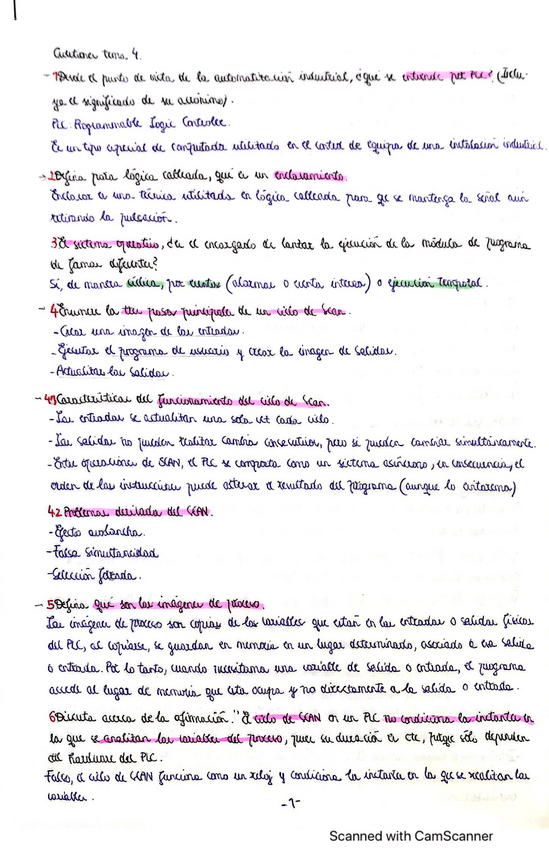 Cuestiones tema 4.
- 1 Desde el punto de vista de la automatización industrial, ¿qué se entiende por PLC? (Inclu-
ya el significado de su acrónimo).
PLC: Programmable Logic Controller.
Es un tipo especial de computadora utilizado en el control de equipos de una instalación industrial.
- 2 Defina para lógica cableada, qué es un enclavamiento.
Enclavar es una técnica utilizada en lógica cableada para qe se mantenga la señal aún
retirando la pulsación.
3 El sistema operativo, ¿es el encargado de lanzar la ejecución de los módulos de programa
de formas diferentes?
Sí, de manera cíclica, por eventos (alarmas o evento interno) o ejecución temporal.
- 4 Enumere los tres pasos principales de un ciclo de Scan.
- Crear una imagen de las entradas.
- Ejecutar el programa de usuario y crear la imagen de salidas.
- Actualizar las salidas.
- 4.1 Características del funcionamiento del ciclo de Scan.
- Las entradas se actualizan una sola vez cada ciclo.
- Las salidas no pueden realizar cambios consecutivos, pero sí pueden cambiar simultáneamente.
- Entre operaciones de SCAN, el PLC se comporta como un sistema asíncrono, en consecuencia, el
orden de las instrucciones puede alterar el resultado del programa (aunque lo evitaremos)
4.2 Problemas derivados del SCAN.
- Efecto avalancha.
- Falsa simultaneidad
- Selección forzada.
- 5 Defina qué son las imágenes de proceso.
Las imágenes de proceso son copias de las variables que están en las entradas o salidas físicas
del PLC, al copiarse, se guardan en memoria en un lugar determinado, asociado a esa salida
o entrada. Por lo tanto, cuando necesitamos una variable de salida o entrada, el programa
accede al lugar de memoria que esta ocupa y no directamente a la salida o entrada.
6 Discuta acerca de la afirmación: "El ciclo de SCAN en un PLC no condiciona los instantes en
los que se analizan las variables del proceso, pues su duración es cte, porque sólo depende
del hardware del PLC.
Falso, el ciclo de SCAN funciona como un reloj y condiciona los instantes en los que se realizan las
variables.
-1-
Scanned with CamScanner